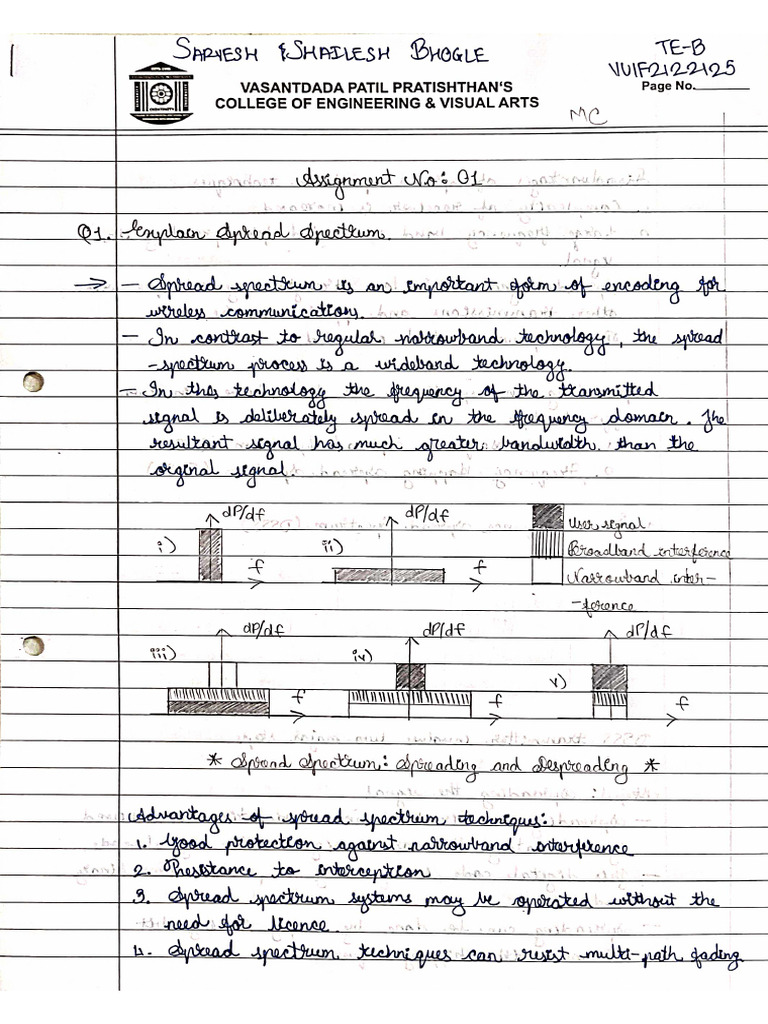 SARVESH SHAILESH BHOGLE
TE-B
VU1F2122125
VASANTDADA PATIL PRATISHTHAN'S
COLLEGE OF ENGINEERING & VISUAL ARTS
Page No.
MC
Assignment No: 01
Q1. Explain Spread Spectrum.
→ - Spread spectrum is an important form of encoding for
wireless communication.
- In contrast to regular narrowband technology, the spread
-spectrum process is a wideband technology.
- In this technology the frequency of the transmitted
signal is deliberately spread in the frequency domain. The
resultant signal has much greater bandwidth than the
orginal signal.
i) dP/df f
ii) dP/df f
User signal
Broadband interference
Narrowband inter-
-ference
iii) dP/df f
iv) dP/df f
v) dP/df f
* Spread Spectrum: Spreading and Despreading *
Advantages of spread spectrum techniques:
1. Good protection against narrowband interference
2. Resistance to interception
3. Spread spectrum systems may be operated without the
need for licence
4. Spread spectrum techniques can resist multi-path fading